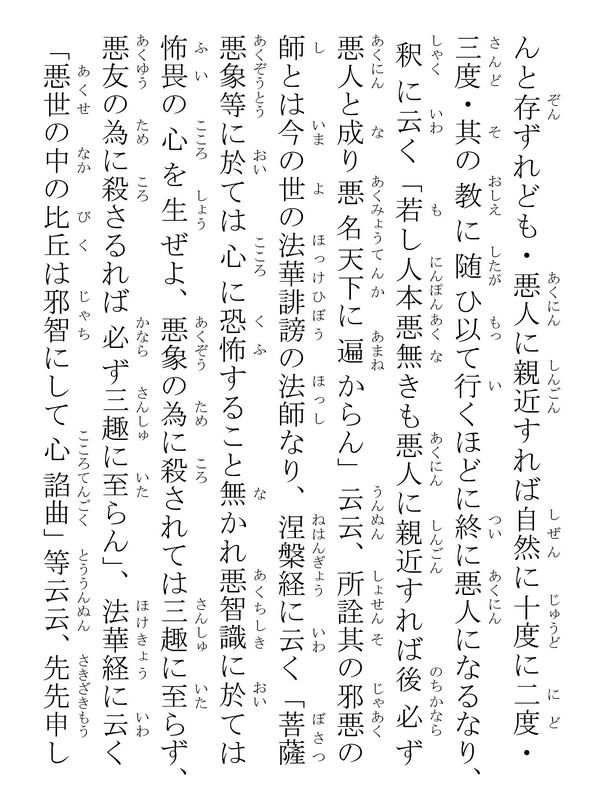 んと存ずれども・悪人に親近すれば自然に十度に二度・
三度・其の教に随ひ以て行くほどに終に悪人になるなり、
釈に云く「若し人本悪無きも悪人に親近すれば後必ず
悪人と成り悪名天下に遍からん」云云、所詮其の邪悪の
師とは今の世の法華誹謗の法師なり、涅槃経に云く「菩薩
悪象等に於ては心に恐怖すること無かれ悪智識に於ては
怖畏の心を生ぜよ、悪象の為に殺されては三趣に至らず、
悪友の為に殺さるれば必ず三趣に至らん」、法華経に云く
「悪世の中の比丘は邪智にして心諂曲」等云云、先先申し